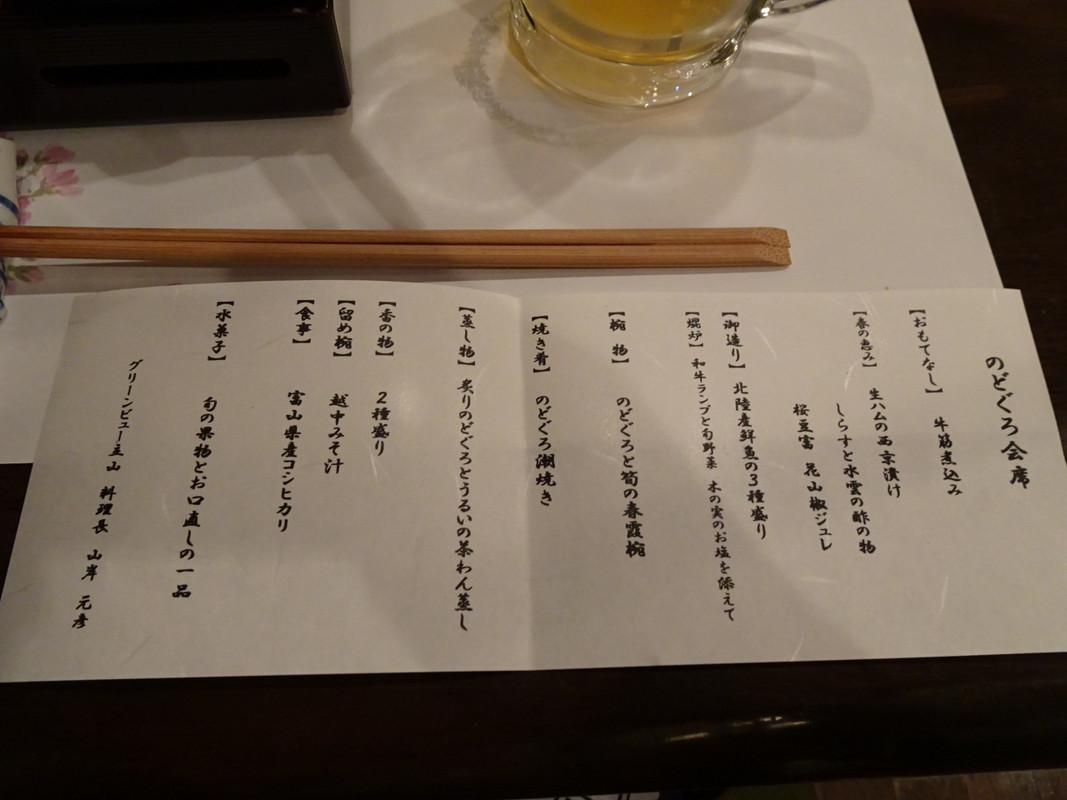 のどぐろ会席
【おもてなし】 牛筋煮込み
【春の恵み】 生ハムの西京漬け
しらすと水雲の酢の物
桜豆富 花山椒ジュレ
【御造り】 北陸産鮮魚の3種盛り
【焜炉】 和牛ランプと旬野菜 木の実のお塩を添えて
【椀 物】 のどぐろと筍の春霞椀
【焼き肴】 のどぐろ潮焼き
【蒸し物】 炙りのどぐろとうるいの茶わん蒸し
【香の物】 2種盛り
【留め椀】 越中みそ汁
【食事】 富山県産コシヒカリ
【水菓子】 旬の果物とお口直しの一品
グリーンビュー立山 料理長 山岸 元彦